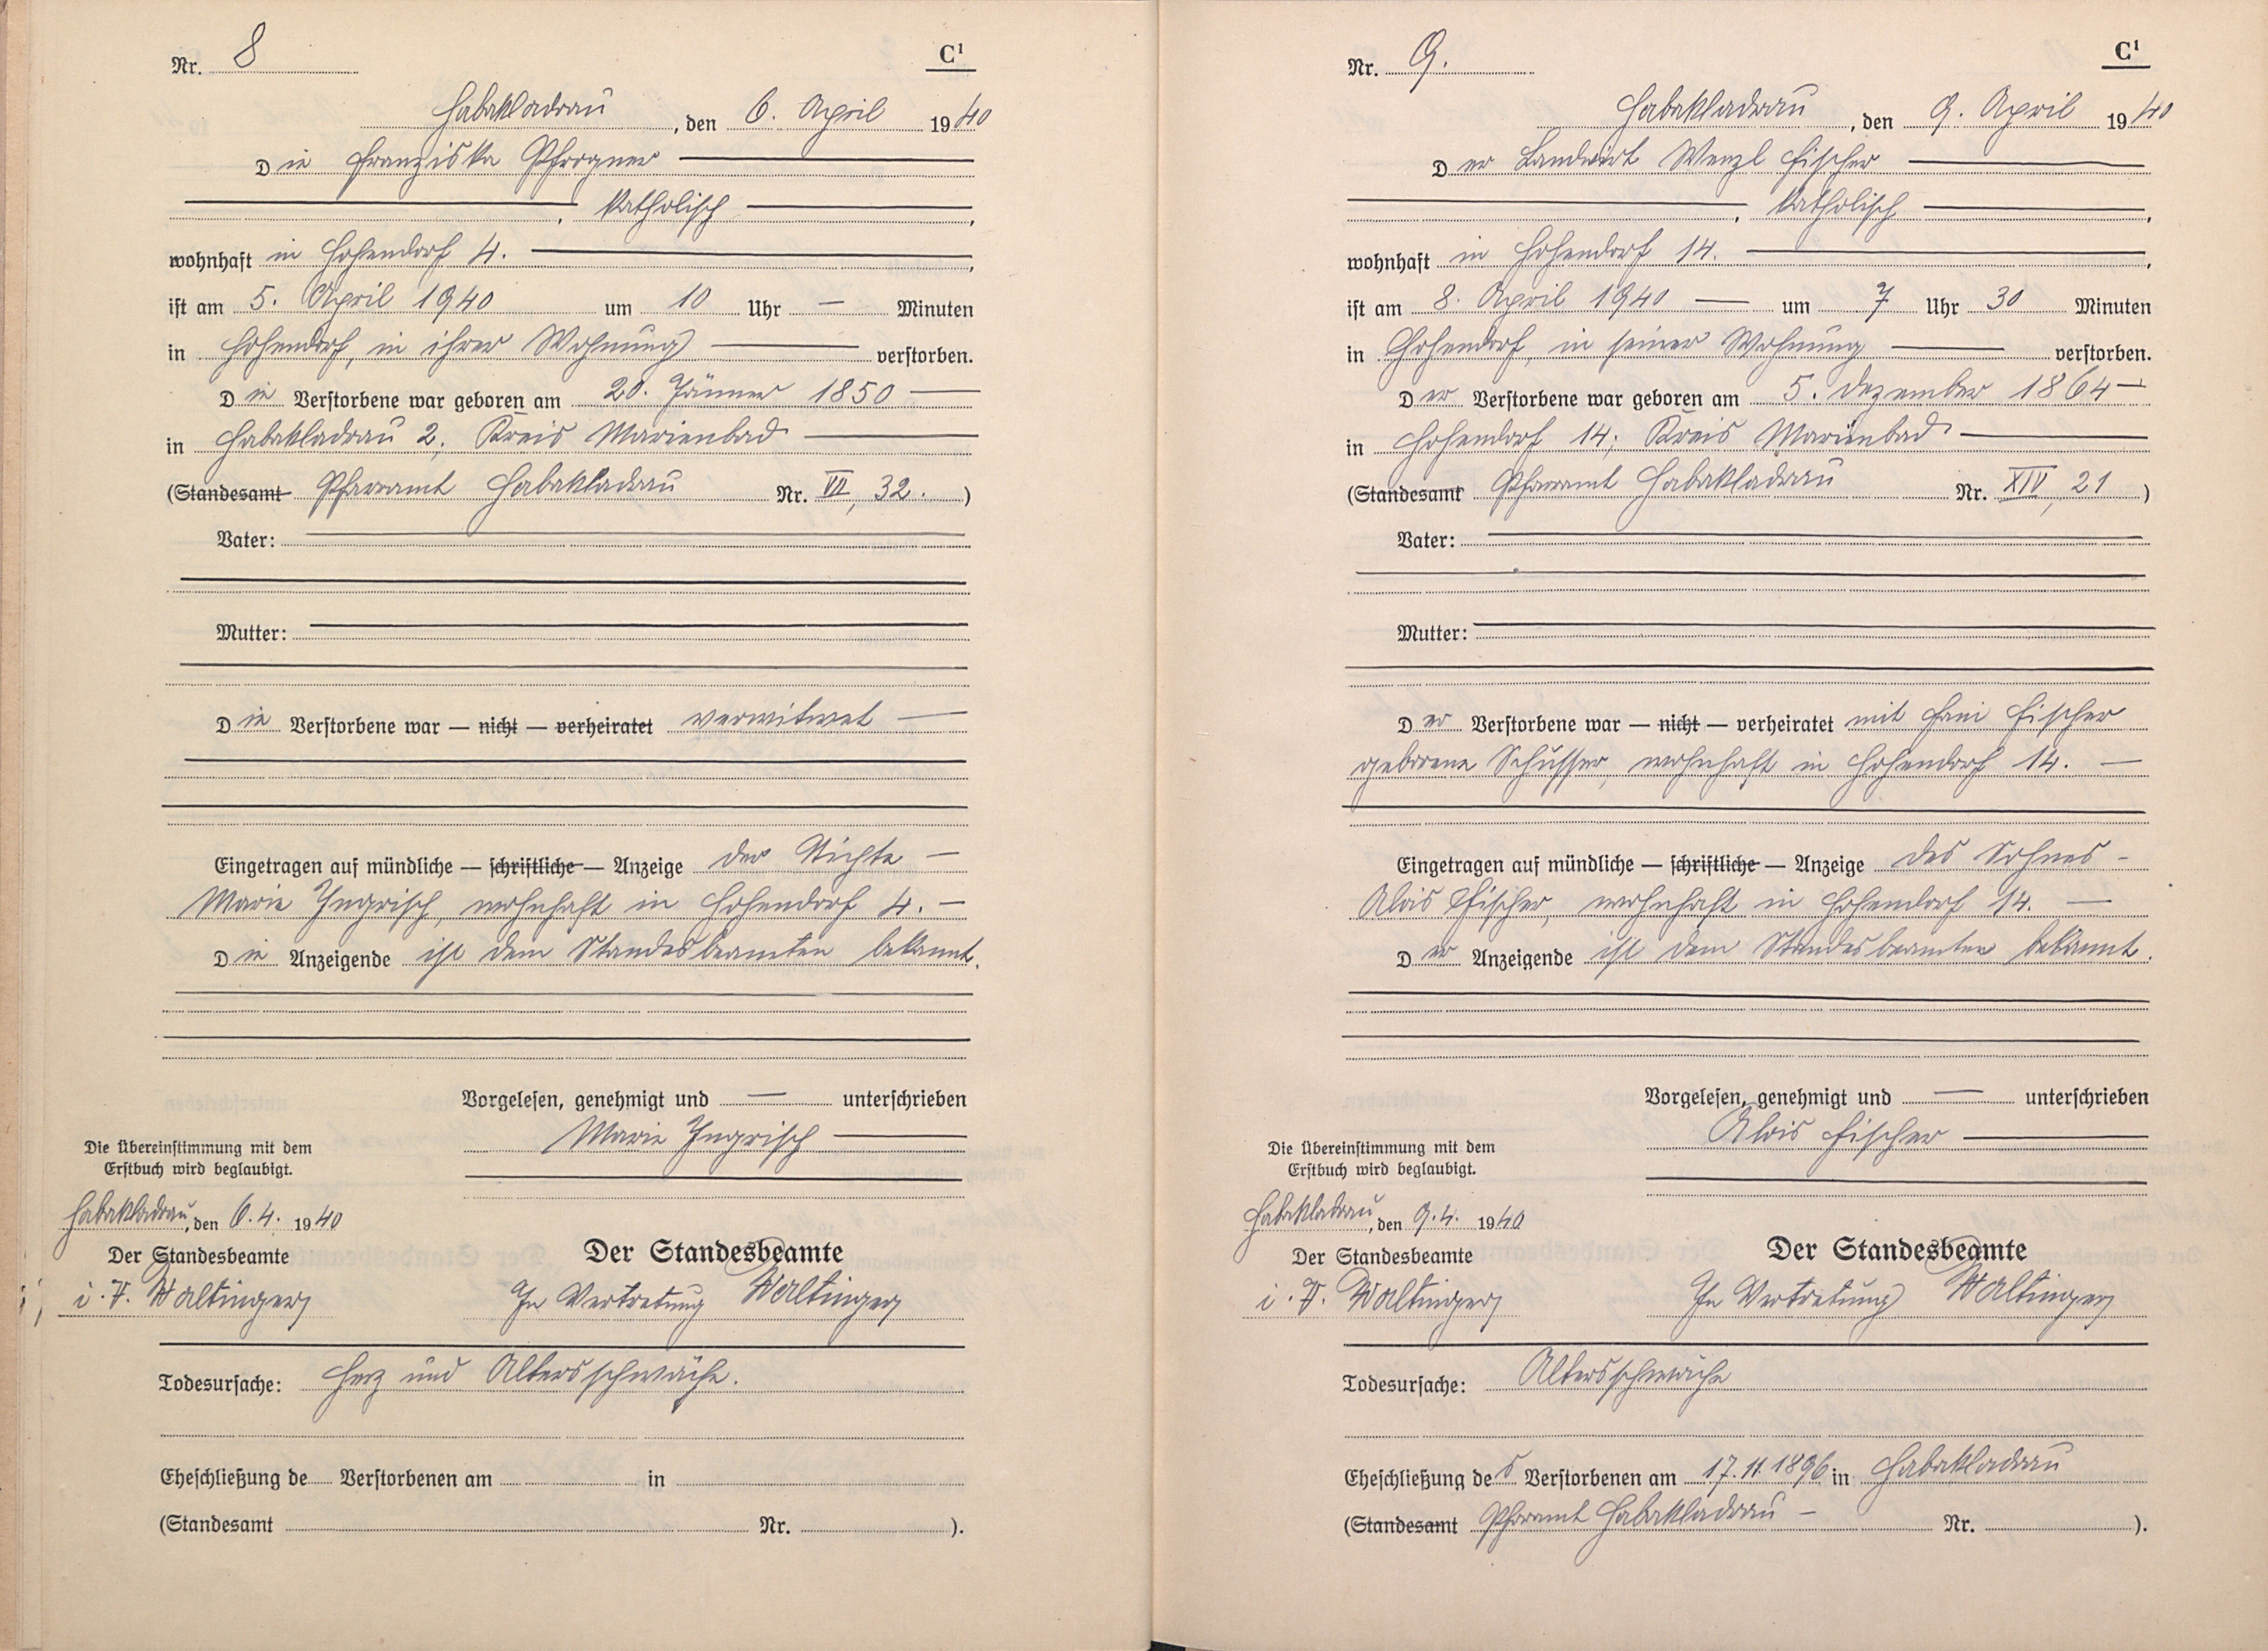 Nr. 8
C¹
Habakladrau, den 6. April 1940
Die Franziska Pfrogner
, katholisch ,
wohnhaft in Hohendorf 4. ,
ist am 5. April 1940 um 10 Uhr — Minuten
in Hohendorf, in ihrer Wohnung verstorben.
Die Verstorbene war geboren am 20. Jänner 1850
in Habakladrau 2, Kreis Marienbad
(Standesamt Pfarramt Habakladrau Nr. VII, 32. )
Vater:
Mutter:
Die Verstorbene war — nicht — verheiratet verwitwet —
Eingetragen auf mündliche — schriftliche — Anzeige der Nichte —
Marie Ingrisch, wohnhaft in Hohendorf 4. —
Die Anzeigende ist dem Standesbeamten bekannt.
Vorgelesen, genehmigt und — unterschrieben
Marie Ingrisch
Die Übereinstimmung mit dem
Erstbuch wird beglaubigt.
Habakladrau, den 6.4. 1940
Der Standesbeamte
i. V. Waltinger
Der Standesbeamte
In Vertretung Waltinger
Todesursache: Herz und Altersschwäche.
Eheschließung de Verstorbenen am in
(Standesamt Nr. ).
Nr. 9.
C¹
Habakladrau, den 9. April 1940
Der Landwirt Wenzl Fischer
, katholisch ,
wohnhaft in Hohendorf 14. ,
ist am 8. April 1940 — um 7 Uhr 30 Minuten
in Hohendorf, in seiner Wohnung verstorben.
Der Verstorbene war geboren am 5. Dezember 1864 —
in Hohendorf 14; Kreis Marienbad
(Standesamt Pfarramt Habakladrau Nr. XIV, 21 )
Vater:
Mutter:
Der Verstorbene war — nicht — verheiratet mit Fani Fischer
geborene Schusser, wohnhaft in Hohendorf 14. —
Eingetragen auf mündliche — schriftliche — Anzeige des Sohnes -
Alois Fischer, wohnhaft in Hohendorf 14. —
Der Anzeigende ist dem Standesbeamten bekannt.
Vorgelesen, genehmigt und — unterschrieben
Alois Fischer
Die Übereinstimmung mit dem
Erstbuch wird beglaubigt.
Habakladrau, den 9.4. 1940
Der Standesbeamte
i. V. Waltinger
Der Standesbeamte
In Vertretung Waltinger
Todesursache: Altersschwäche
Eheschließung des Verstorbenen am 17.11.1896 in Habakladrau
(Standesamt Pfarramt Habakladrau — Nr. ).